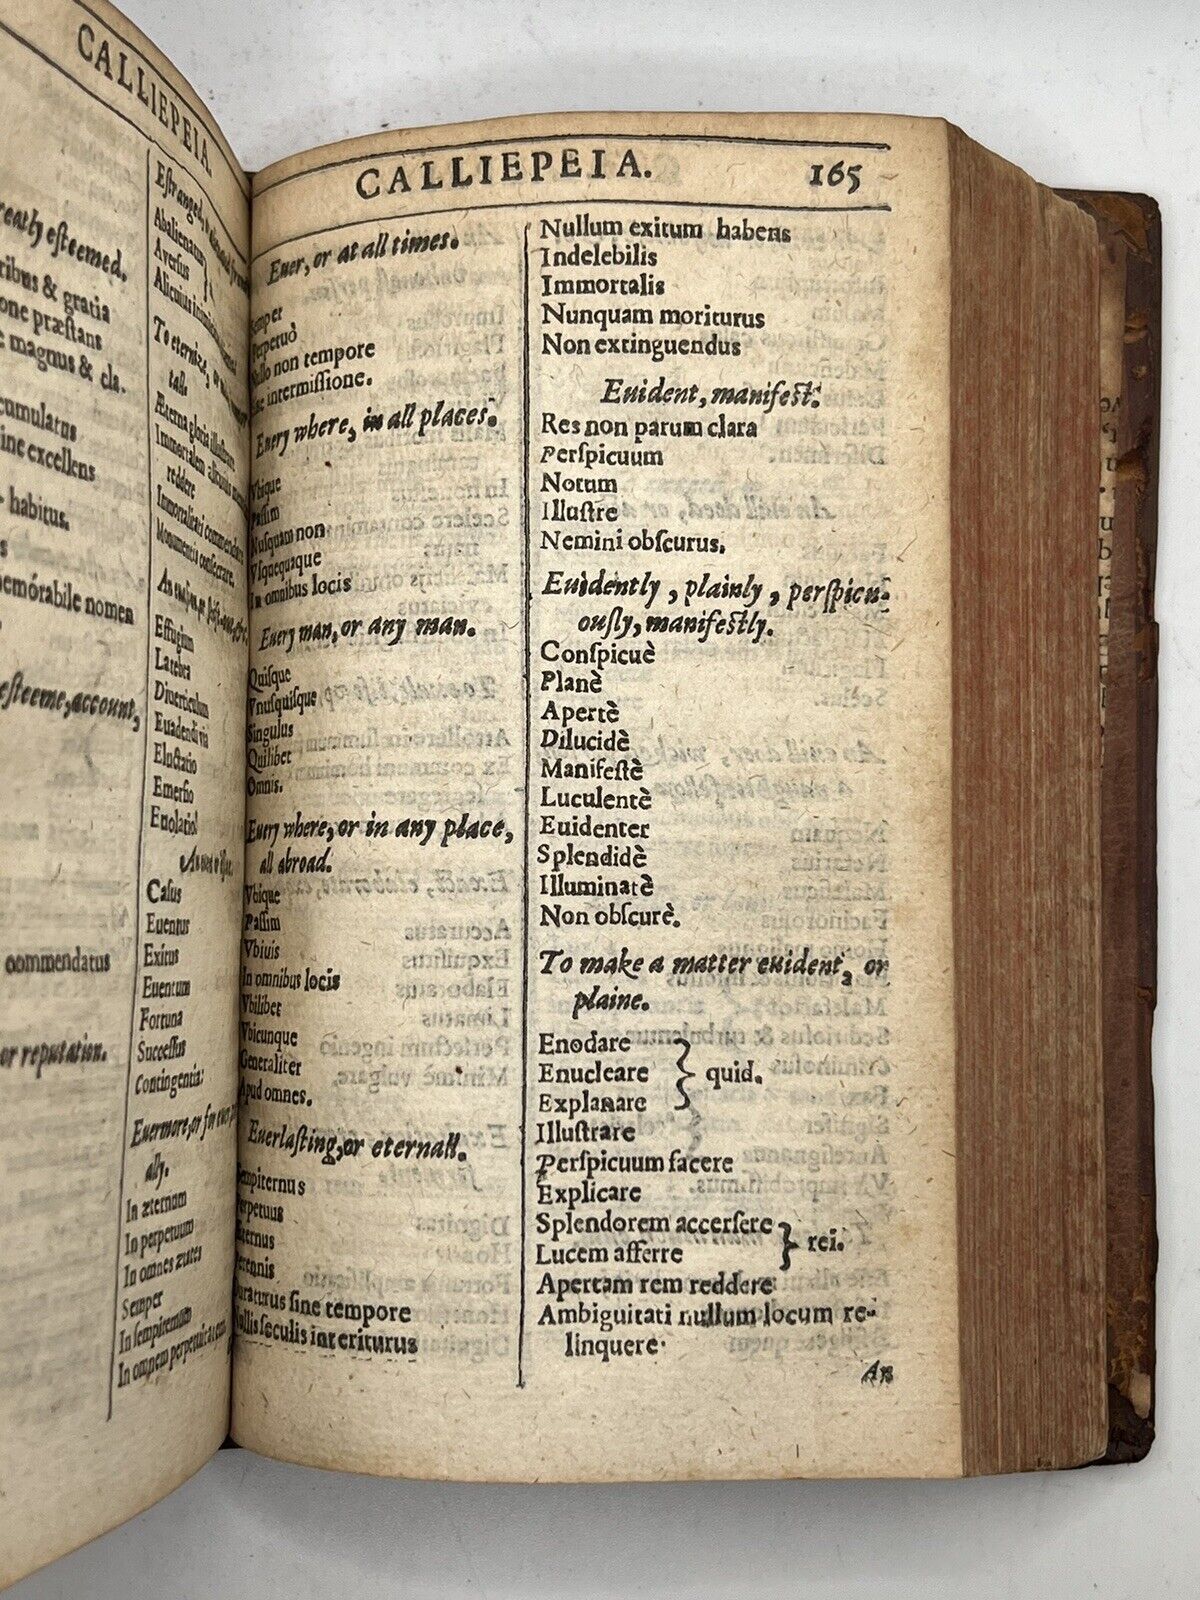 CALLIEPEIA.
reatly esteemed.
ribus & gratia
one præstans
magnus & cla.
cumulatus
ine excellens
habitus.
emórabile nomen
esteeme, account,
commendatus
or reputation.
Estranged,
Abalienatum
Aversus
Alicuius
To eternize, or
Æterna gloria illustrare
Immortalem
reddere
Immortalitati commendare
Monumentis consecrare.
Effugium
Latebra
Diuerticulum
Euadendi via
Eluctatio
Emersio
Euolatio.
Casus
Euentus
Exitus
Euentum
Fortuna
Successus
Contingentia.
Euermore, or for euer
ally.
In æternum
In perpetuum
In omnes
Semper
In sempiternum
In omnem
CALLIEPEIA. 165
Euer, or at all times.
Semper
Perpetuò
Nullo non tempore
intermissione.
Euery where, in all places.
Vbique
Passim
Nusquam non
Vsquequaque
In omnibus locis
Euery man, or any man.
Quisque
Vnusquisque
Singulus
Quilibet
Omnis.
Euery where, or in any place,
all abroad.
Vbique
Passim
Vbiuis
In omnibus locis
Vbilibet
Vbicunque
Generaliter
Apud omnes.
Euerlasting, or eternall.
Sempiternus
Perpetuus
Æternus
Perennis
Duraturus sine tempore
Nullis seculis interiturus
Nullum exitum habens
Indelebilis
Immortalis
Nunquam moriturus
Non extinguendus
Euident, manifest.
Res non parum clara
Perspicuum
Notum
Illustre
Nemini obscurus.
Euidently, plainly, perspicu-
ously, manifestly.
Conspicuè
Planè
Apertè
Dilucidè
Manifestè
Luculentè
Euidenter
Splendidè
Illuminatè
Non obscurè.
To make a matter euident, or
plaine.
Enodare
Enucleare } quid.
Explanare
Illustrare
Perspicuum facere
Explicare
Splendorem accersere
Lucem afferre } rei.
Apertam rem reddere
Ambiguitati nullum locum re-
linquere.
An